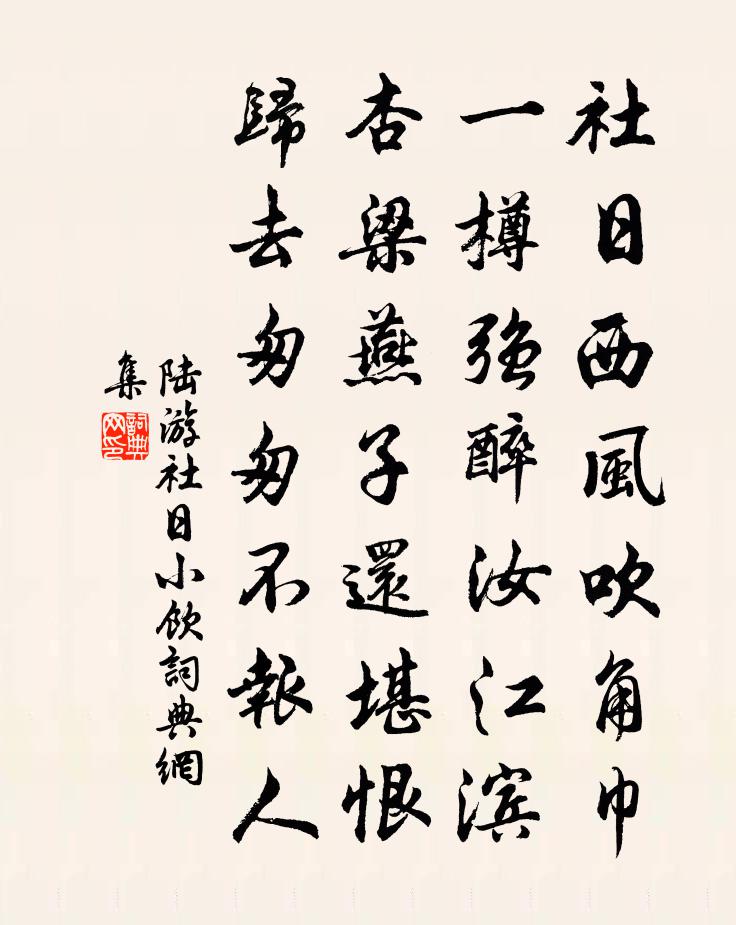 社日西風吹角巾
一樽強醉汝江滨
杏梁燕子還堪恨
歸去匆匆不報人
陆游社日小飲詞典網
集
詞典
网印